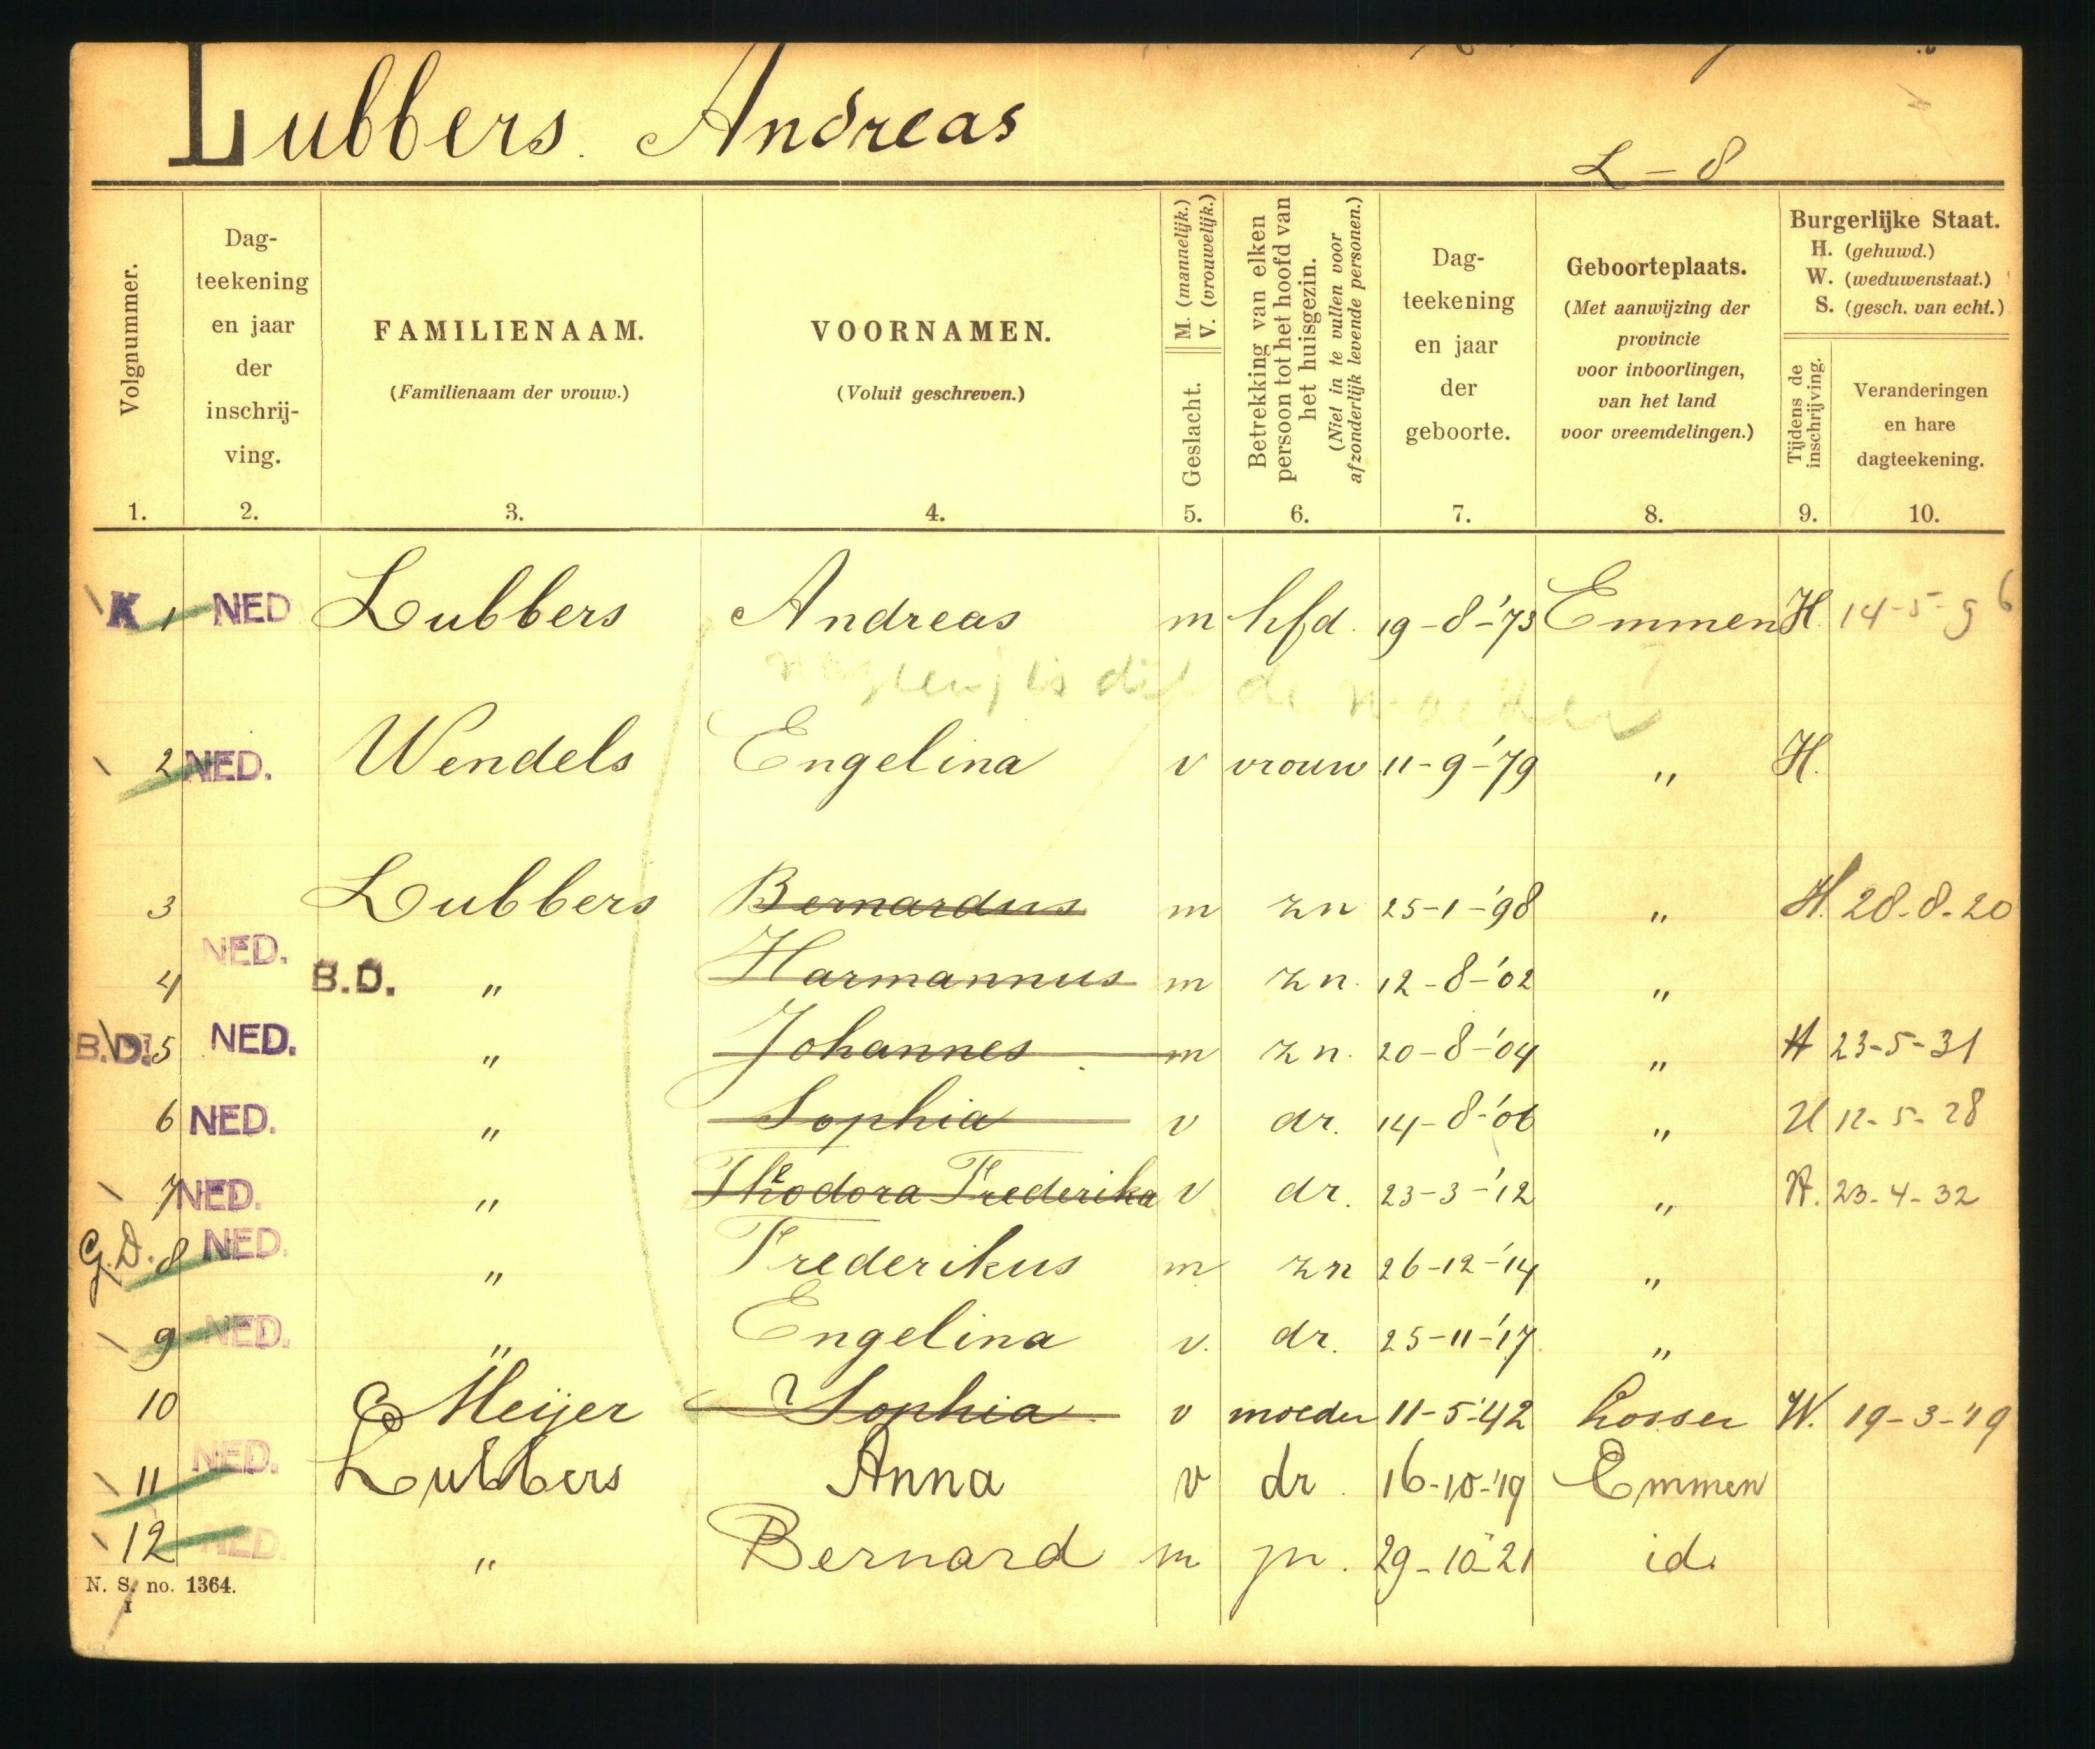 Lubbers Andreas
L - 8
Volgnummer.
Dag-
teekening
en jaar
der
inschrij-
ving.
FAMILIENAAM.
(Familienaam der vrouw.)
VOORNAMEN.
(Voluit geschreven.)
M. (mannelijk.)
V. (vrouwelijk.)
Geslacht.
Betrekking van elken
persoon tot het hoofd van
het huisgezin.
(Niet in te vullen voor
afzonderlijk levende personen.)
Dag-
teekening
en jaar
der
geboorte.
Geboorteplaats.
(Met aanwijzing der
provincie
voor inboorlingen,
van het land
voor vreemdelingen.)
Burgerlijke Staat.
H. (gehuwd.)
W. (weduwenstaat.)
S. (gesch. van echt.)
Tijdens de
inschrijving.
Veranderingen
en hare
dagteekening.
1. 2. 3. 4. 5. 6. 7. 8. 9. 10.
K 1 NED Lubbers Andreas m hfd. 19-8-'73 Emmen H. 14-5-96
is dit de moeder
2 NED. Wendels Engelina v vrouw 11-9-'79 " H.
3 Lubbers Bernardus m zn 25-1-'98 " H. 28-8-20
4 NED. B.D. " Harmannus m zn. 12-8-'02 "
B.D. 5 NED. " Johannes m zn. 20-8-'04 " H 23-5-31
6 NED. " Sophia v dr. 14-8-'06 " H 12-5-28
7 NED. " Theodora Frederika v dr. 23-3-'12 " H. 23-4-32
G.D. 8 NED. " Frederikus m zn 26-12-'14 "
9 NED. " Engelina v. dr. 25-11-'17 "
10 Meijer Sophia v moeder 11-5-'42 Losser W. 19-3-'19
11 NED. Lubbers Anna v dr. 16-10-'19 Emmen
12 NED. " Bernard m zn. 29-10-21 id.
N. S. no. 1364.
I